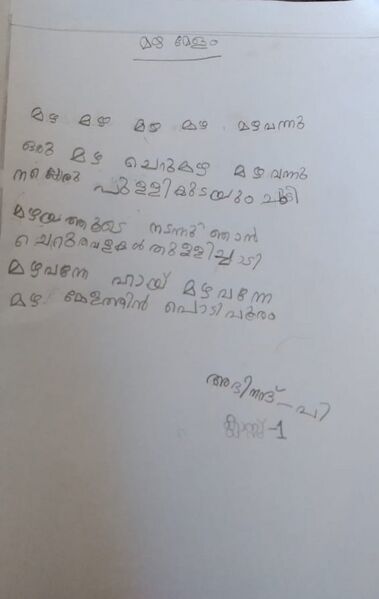 മഴ മേളം
മഴ മഴ മഴ മഴ മഴവന്നു
ഒരു മഴ ചെറുമഴ മഴവന്നു
നല്ലൊരു പുള്ളികുടയും ചൂടി
മഴയത്തൂടെ നടന്നു ഞാൻ
ചെറുതവളകൾതുള്ളിച്ചാടി
മഴവന്നേ ഹായ് മഴവന്നേ
മഴ മേളത്തിൻ പൊടിപൂരം
അഭിനന്ദ് - പി
ക്ലാസ്സ് -1